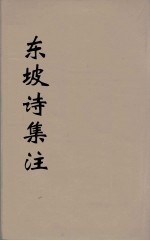 东坡诗集注